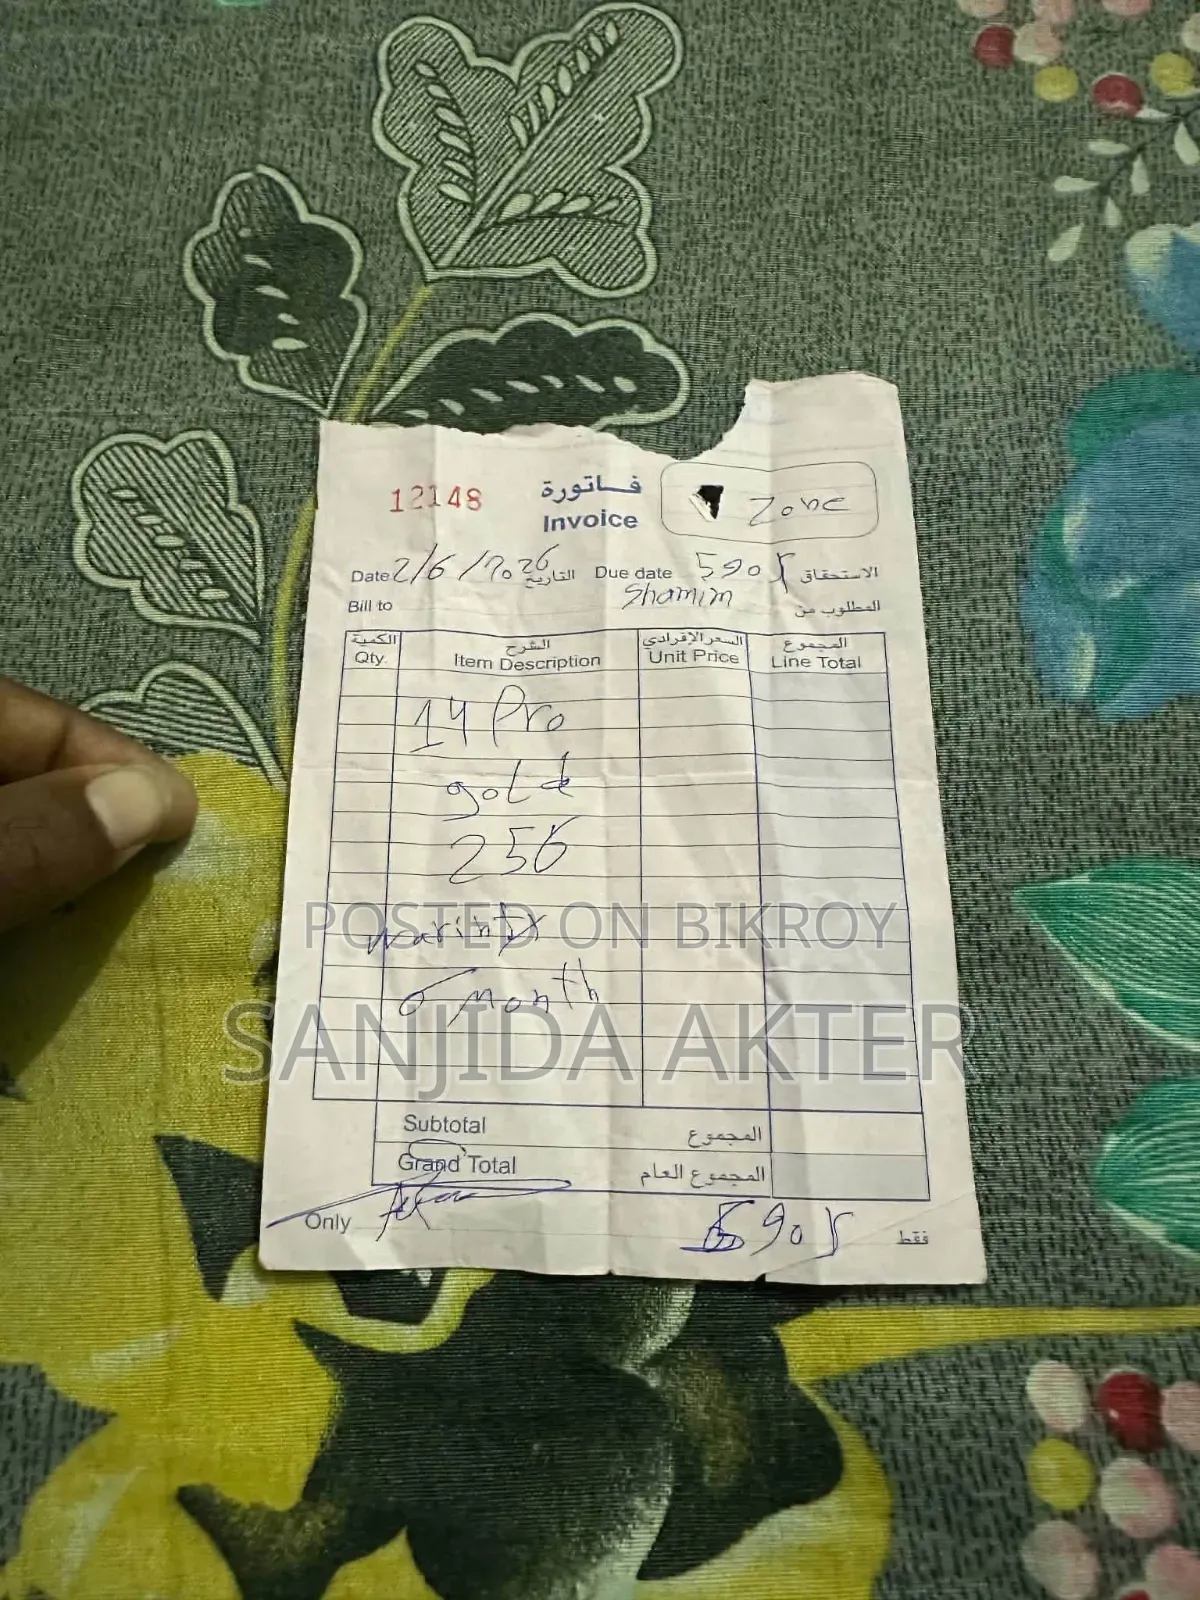 12148 فاتورة
Invoice
Zone
Date 2/6/2026 التاريخ Due date 590 الاستحقاق
Bill to Shamim المطلوب من
الكمية الشرح السعر الإفرادي المجموع
Qty. Item Description Unit Price Line Total
14 Pro
gold
256
warinty
6 month
Subtotal المجموع
Grand Total المجموع العام
Only 590 فقط
POSTED ON BIKROY
SANJIDA AKTER